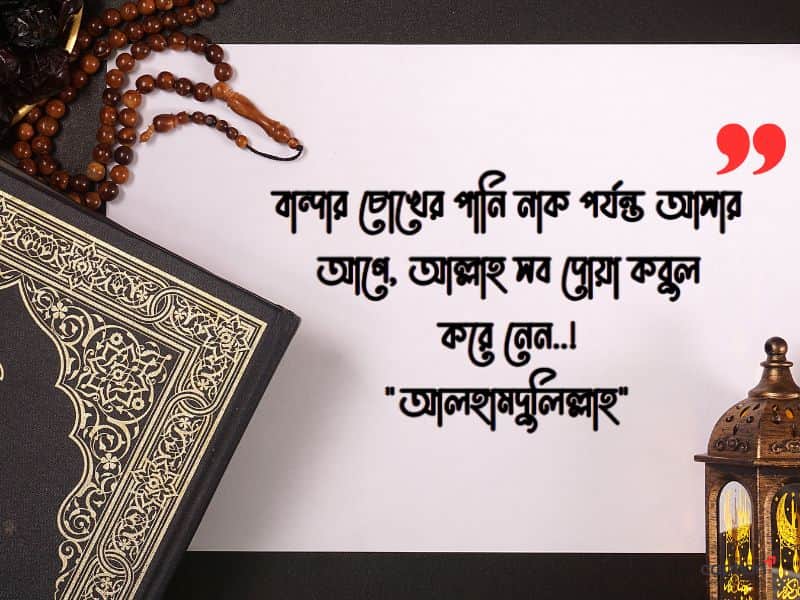 বান্দার চোখের পানি নাক পর্যন্ত আসার
আগে, আল্লাহ সব দোয়া কবুল
করে নেন..!
"আলহামদুলিল্লাহ"